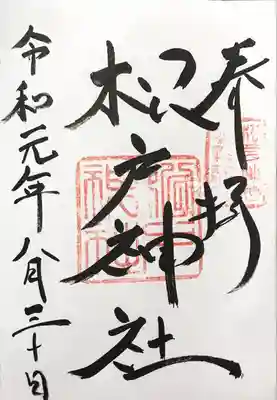 奉拝
松戸神社
令和元年八月三十日